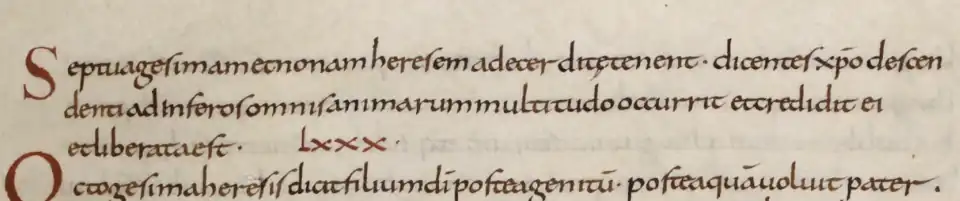 Septuagesimam et nonam heresem adecerditę tenent · dicentes xp̄o descen
denti ad inferos omnis animarum multitudo occurrit et credidit ei
et liberata est · lxxx ·
Octogesima heresis dicit filium dī postea genitū · postea quā uoluit pater .